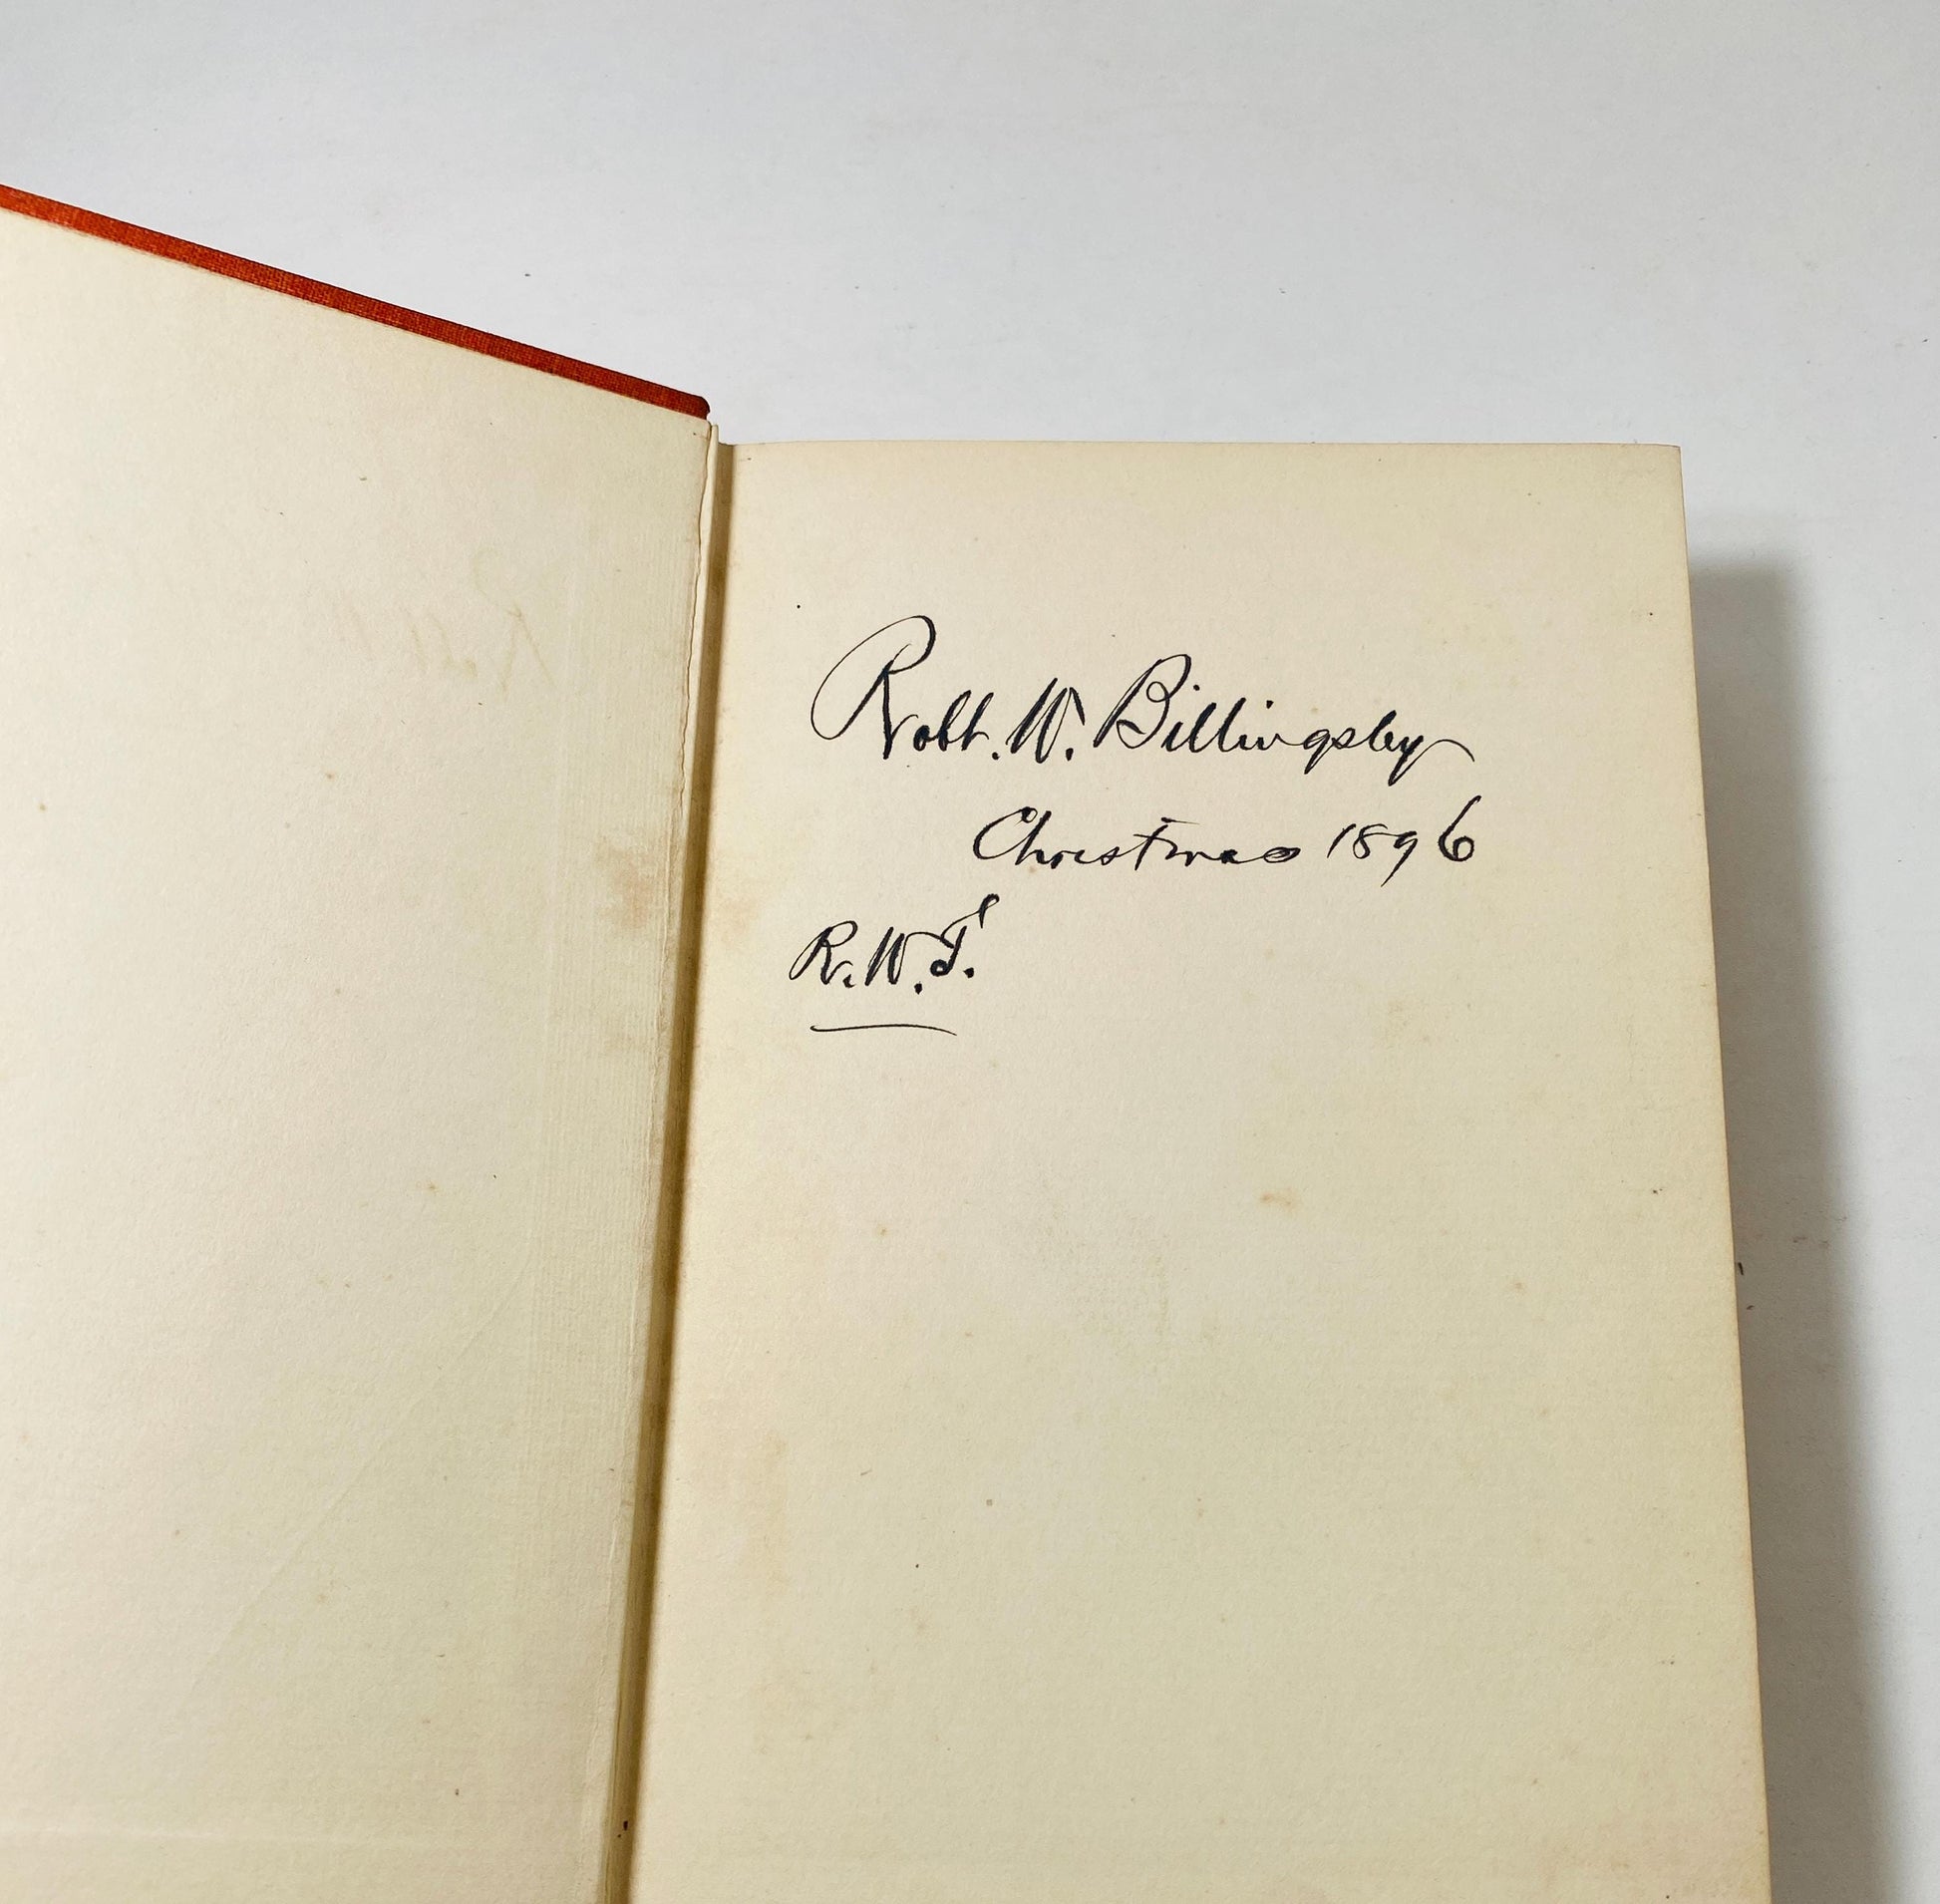 Robt. W. Billingsby
Christmas 1896
R.W.T.